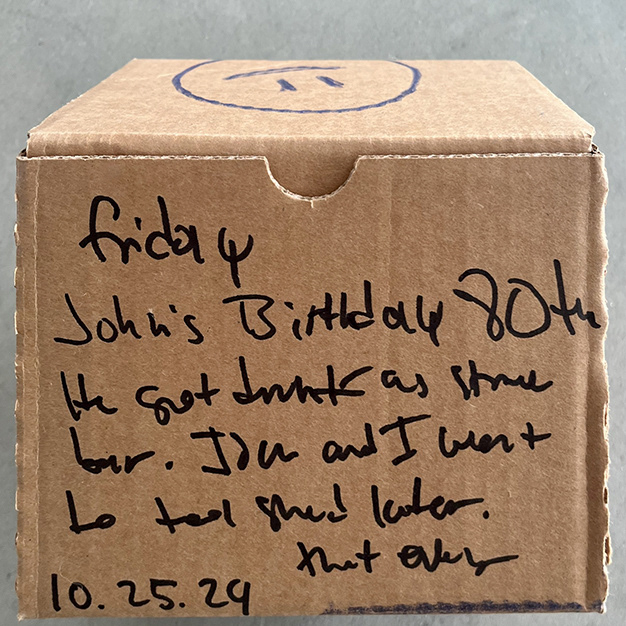 friday
John's Birthday 80th
He got drunk as some
bar. Jon and I went
to tool shed later.
that
10.25.24